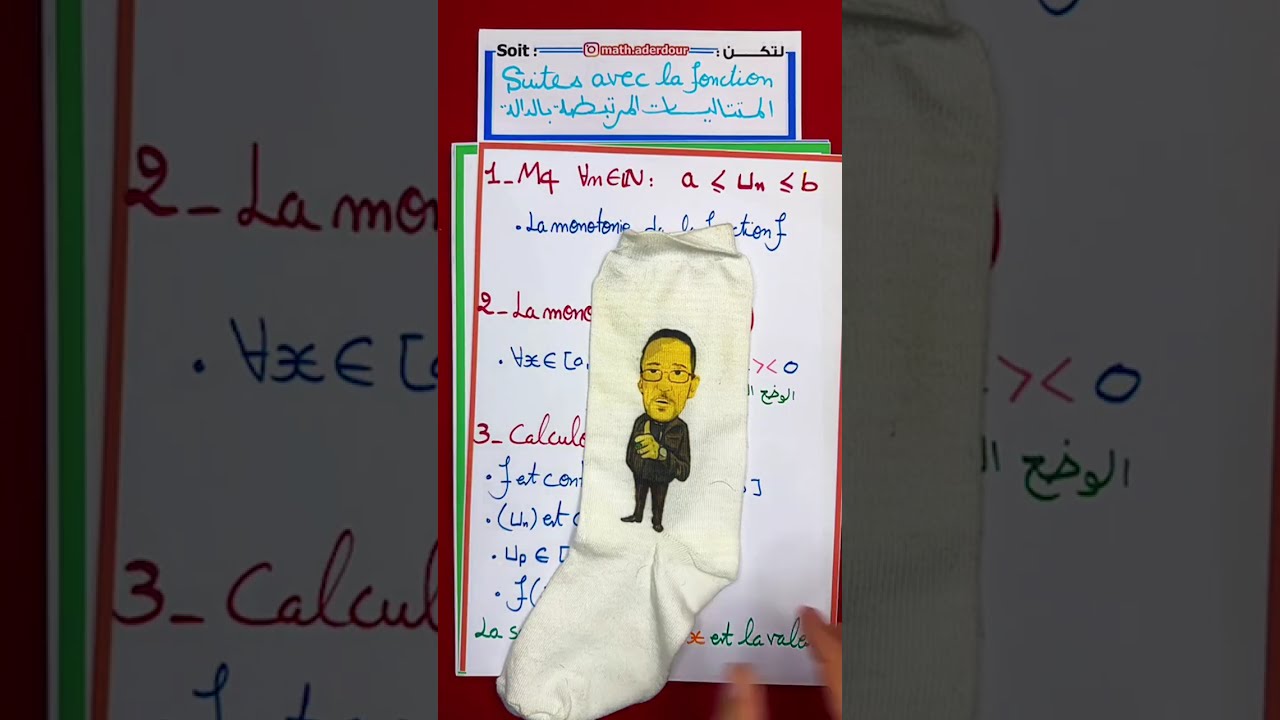 Soit : math.aderdour لتكن :
Suites avec la fonction
المتتاليات المرتبطة بالدالة
1_ Mq ∀n∈ℕ: a ≤ Un ≤ b
• La monotonie de la fonction f
2_ La mono )
• ∀x∈[a, >< 0
الوضع ال
3_ Calcul
• f est cont ]
• (Un) est c
• Up ∈ [
• f(
La s x est la vale